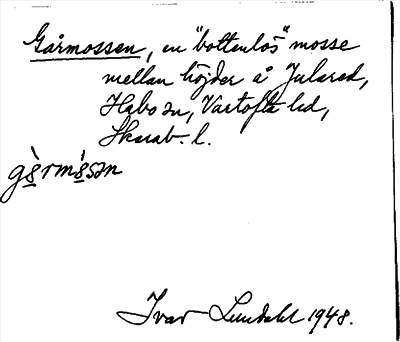 Gårmossen, en "bottenlös" mosse
mellan höjder å Julared,
Habo sn, Vartofta hd,
Skarab. l.
gə̀rmə́sən
Ivar Lundahl 1948.